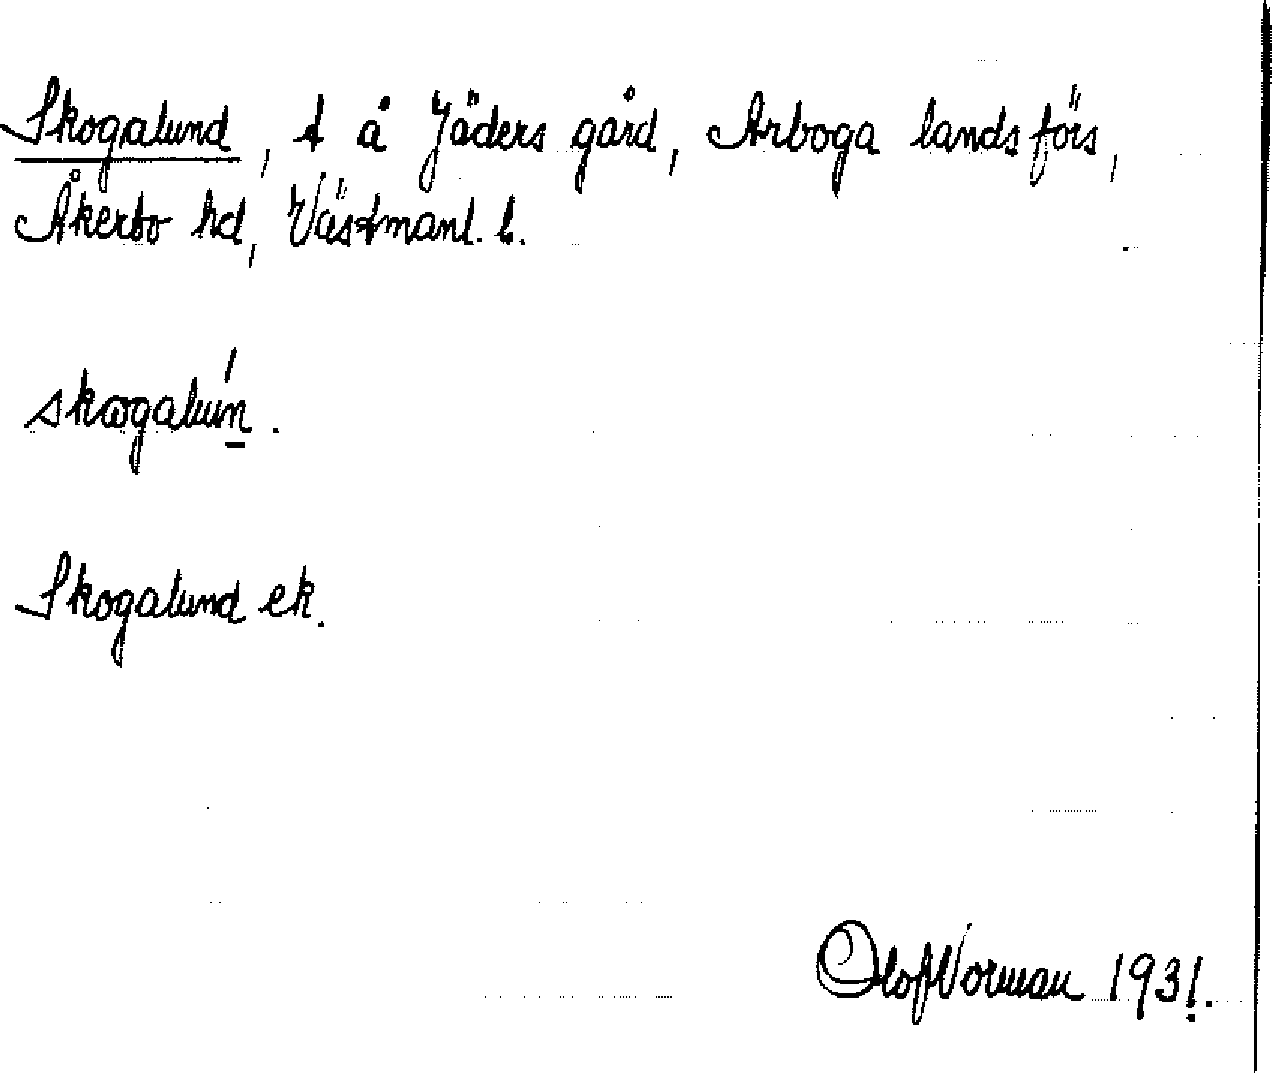 Skogalund, t å Jäders gård, Arboga landsförs,
Åkerbo hd, Västmanl. l.
skogaluń̲.
Skogalund ek.
Olof Norman 1931.